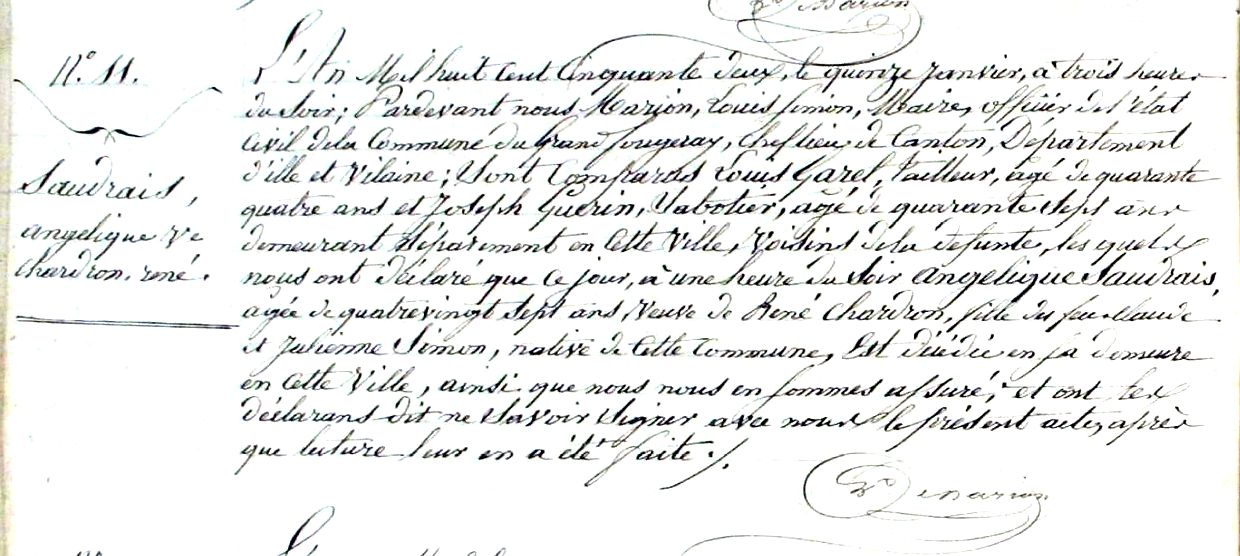 Marion
N.° 11.
Saudrais,
angelique Ve
chardron. rené.
L'An Mil huit cent cinquante deux, le quinze janvier, à trois heures
du soir; Pardevant nous Marion, Louis Simon, Maire, officier de l'état
Civil de la Commune du Grand fougeray, chef lieu de Canton, Département
d'ille et Vilaine; Sont Comparus Louis Garel, tailleur, agé de quarante
quatre ans et Joseph Guerin, Sabotier, agé de quarante sept ans
demeurant séparément en cette Ville, Voisins de la defunte, les quels
nous ont déclaré que ce jour, à une heure du Soir angelique Saudrais,
agée de quatrevingt sept ans, Veuve de René chardron, fille de feu Claude
et Julienne Simon, native de cette Commune, Est décédée en sa demeure
en cette Ville, ainsi que nous nous en sommes assuré; et ont les
déclarans dit ne Savoir Signer avec nous le présent acte, après
que lecture leur en a été faite ./.
Marion